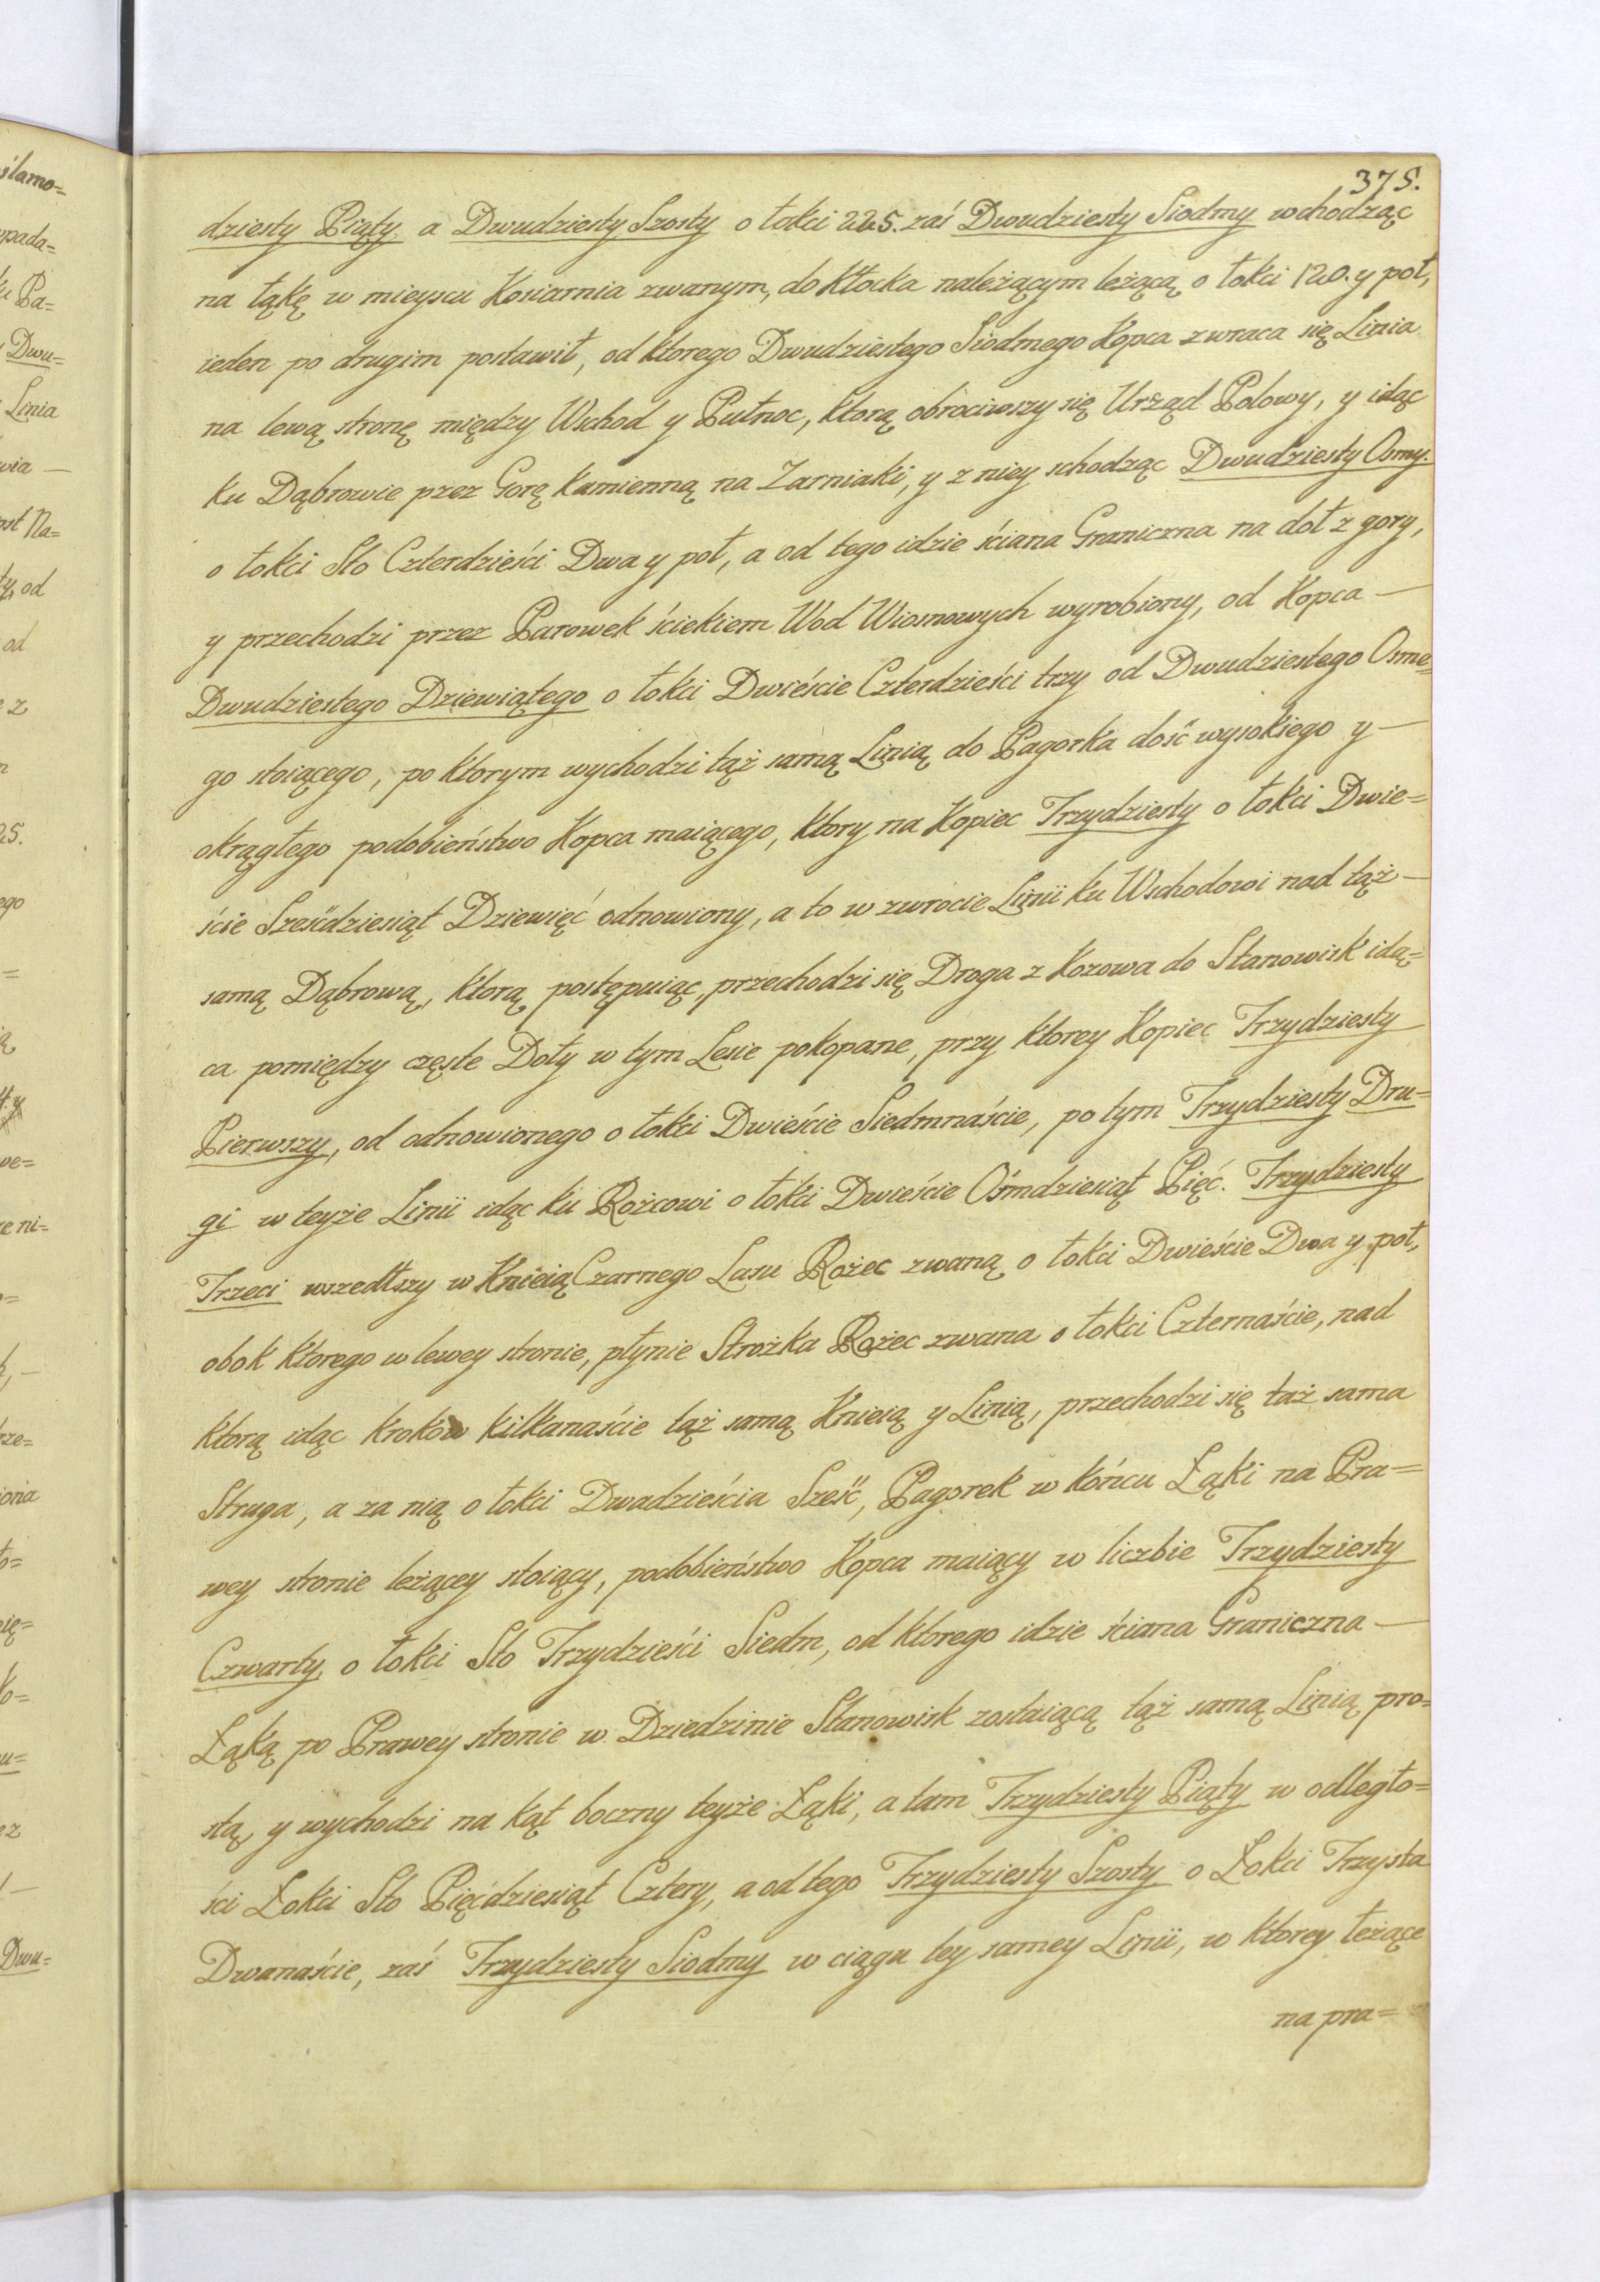 375.
dziesty Piąty a Dwudziesty Szosty o łokci 225. zaś Dwudziesty Siodmy wchodząc
na łąkę w mieyscu Kosiarnia zwanym, do Kłocka należącym leżącą o łokci 120. y poł,
ieden po drugim postawił, od ktorego Dwudziestego Siodmego Kopca zwraca się Linia
na lewą stronę między Wschod y Pułnoc, ktorą obrociwszy się Urząd Polowy, y idąc
ku Dąbrowie przez Gorę kamienną na Zarniaki, y z niey schodząc Dwudziesty Osmy
o łokci Sto Czterdzieści Dwa y poł, a od tego idzie ściana Graniczna na doł z gory,
y przechodzi przez Parowek ściekiem Wód Wiosnowych wyrobiony, od Kopca —
Dwudziestego Dziewiątego o łokci Dwieście Czterdzieści trzy od Dwudziestego Osme=
go stoiącego, po ktorym wychodzi tąż samą Linią do Pagorka dość wysokiego y —
okrągłego podobieństwo Kopca maiącego, ktory na Kopiec Trzydziesty o łokci Dwie=
ście Sześćdziesiąt Dziewięć odnowiony, a to w zwrocie Linii ku Wschodowi nad tąż —
samą Dąbrową, ktorą postępuiąc, przechodzi się Droga z Kozowa do Stanowisk idą=
ca pomiędzy częste Doły w tym Lesie pokopane, przy ktorey Kopiec Trzydziesty
Pierwszy, od odnowionego o łokci Dwieście Siedmnaście, po tym Trzydziesty Dru=
gi w teyże Linii idąc ku Rożcowi o łokci Dwieście Ośmdziesiąt Pięć. Trzydziesty
Trzeci wszedłszy w Knieią Czarnego Lasu Rożec zwaną o łokci Dwieście Dwa y poł,
obok ktorego w lewey stronie, płynie Strożka Rożec zwana o łokci Czternaście, nad
ktorą idąc krokow kilkanaście tąż samą Knieią y Linią, przechodzi się taż sama
Struga, a za nią o łokci Dwadzieścia Sześć, Pagorek w końcu Łąki na Pra=
wey stronie leżącey stoiący, podobieństwo Kopca maiący w liczbie Trzydziesty
Czwarty o łokci Sto Trzydzieści Siedm, od ktorego idzie ściana Graniczna —
Łąką po Prawey stronie w Dziedzinie Stanowisk zostaiącą tąż samą Linią pro=
stą, y wychodzi na kąt boczny teyże Łąki, a tam Trzydziesty Piąty w odległo=
ści Łokci Sto Pięćdziesiąt Cztery, a od tego Trzydziesty Szosty o Łokci Trzysta
Dwanaście, zaś Trzydziesty Siodmy w ciągu tey samey Linii, w ktorey leżące
na pra=